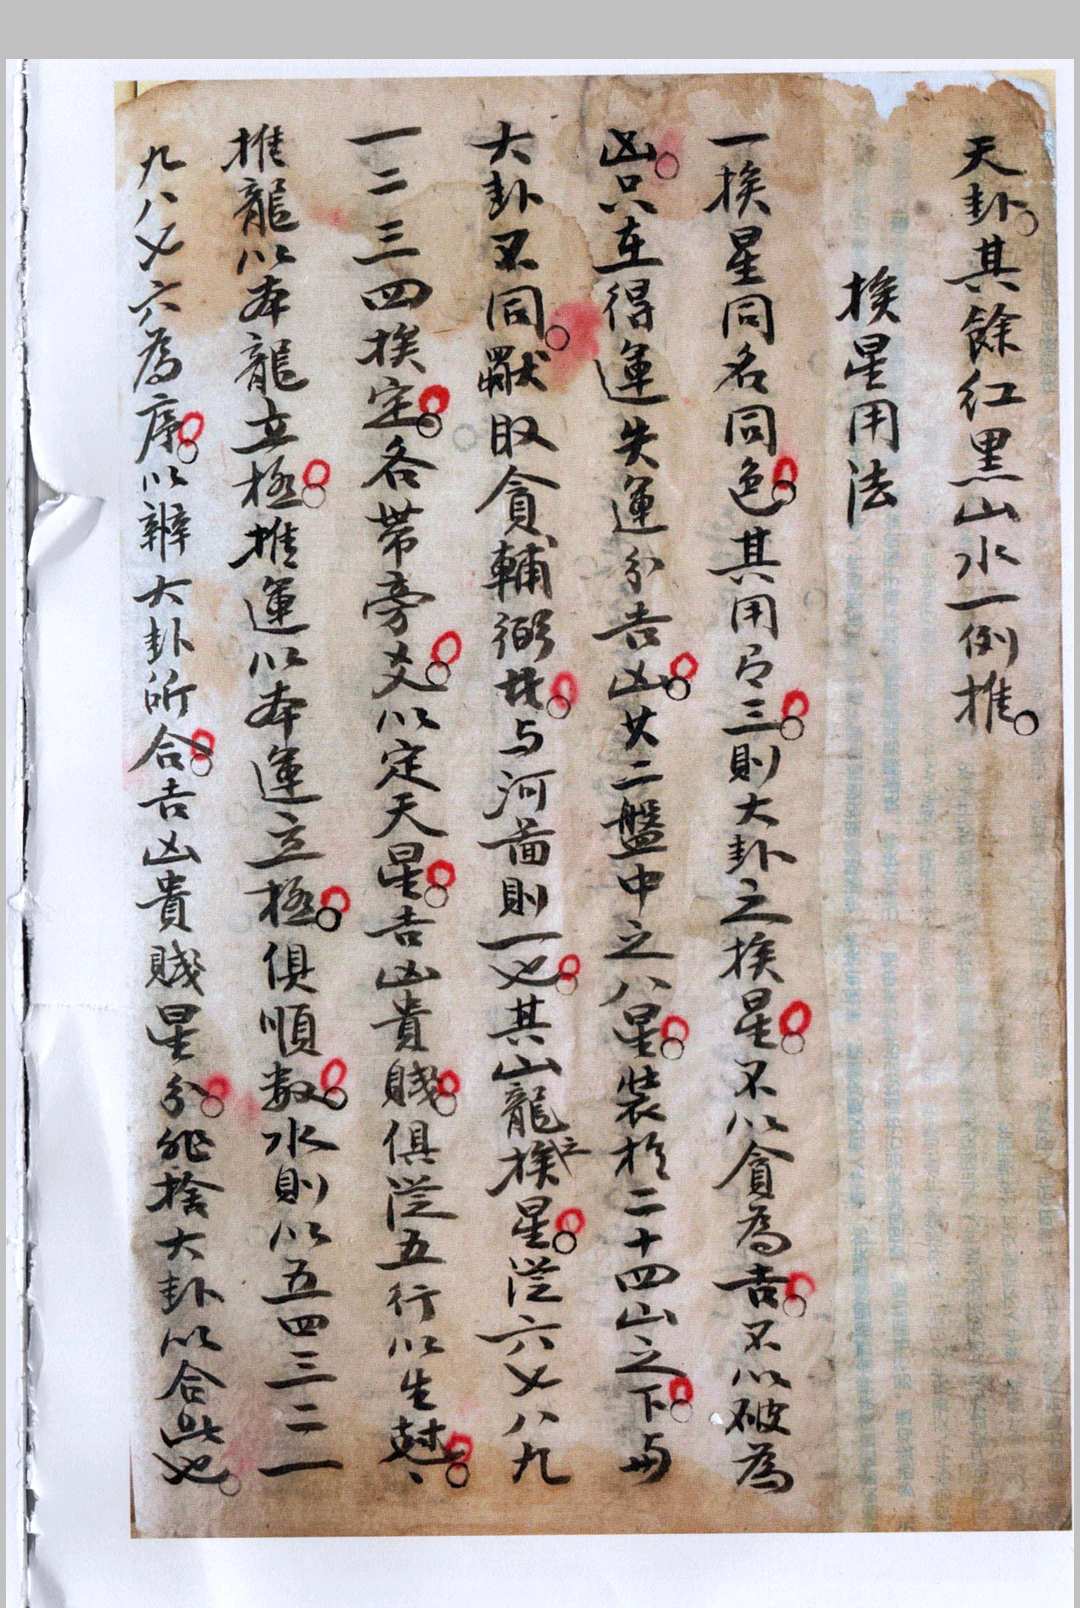 天卦其餘紅黑山水一例推
挨星用法
一挨星同名同色其用有三則大卦之挨星不以貪為吉不以破為
凶只在得運失運分吉凶廿二盤中之八星裝於二十四山之下與
大卦不同獸取貪輔弼龙与河啚則一也其山龍立挨星從六七八九
一二三四挨定各带旁爻以定天星吉凶貴賤俱從五行以生尅、
推龍以本龍立極推運以本運立極俱順数水則以五四三二一
九八七六為序以辨大卦所合吉凶貴賤星分非捨大卦以合此也